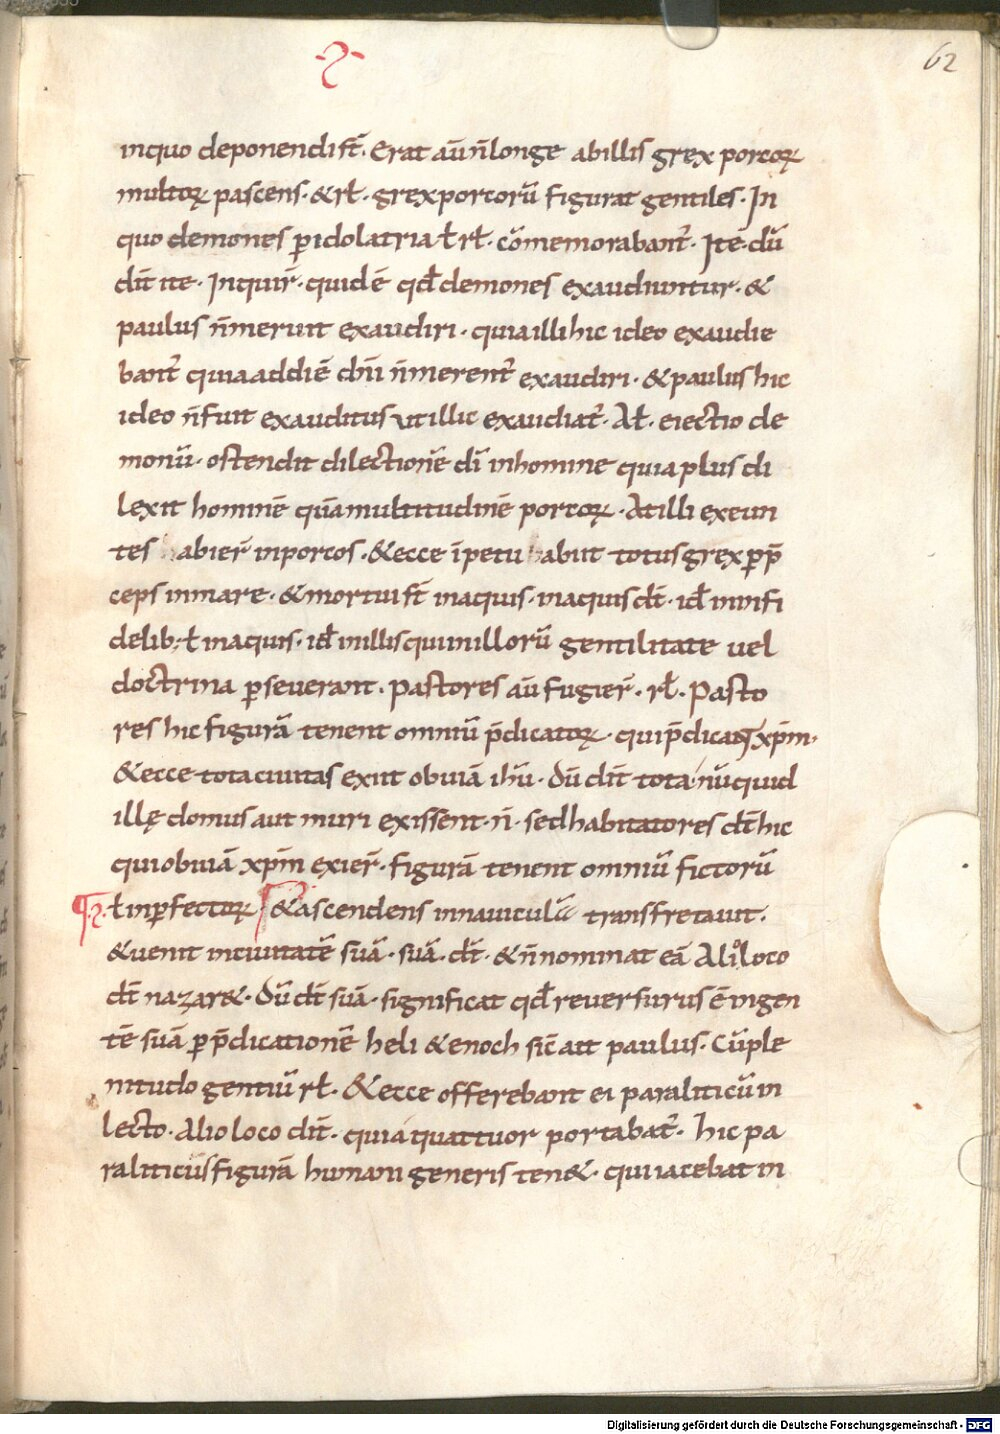 62
inquo deponendi st̄. Erat aū n̄ longe abillis grex porcoꝝ
multoꝝ pascens. & rł. grex porcorū figurat gentiles. In
quo demones ꝑ idolatria ł rł. cōmemorabant̄. Itē. dū
dix̄ ite. Inquir̄. quid ē qđ demones exaudiuntur. &
paulus n̄ meruit exaudiri. quia illi hic ideo exaudie
bant̄ quia addiē n̄ merent̄ exaudiri. & paulus hic
ideo n̄ fuit exauditus ut illic exaudiat̄. Ał. eiectio de
monū. ostendit dilectionē dī inhomine quia plus di
lexit hominē quā multitudinē porcoꝝ. At illi exeun
tes abier̄ inporcos. & ecce īpetu abiit totus grex ꝑp̄
ceps inmare. & mortui st̄ inaquis. inaquis dt̄. iđ in infi
delib; ł inaquis. iđ inillis qui inillorū gentilitate uel
doctrina ꝑseuerant. Pastores aū fugier̄. rł. Pasto
res hic figurā tenent omniū p̄dicatoꝝ. qui p̄dicant xp̄m.
& ecce tota ciuitas exiit obuiā ihū. Dū dix̄ tota. nūquid
illę domus aut muri exissent. n̄. sed habitatores dt̄ hic
qui obuiā xp̄m exier̄. figurā tenent omniū fictorū
ł inꝑfectoꝝ & ascendens innauiculā transfretauit.
& uenit inciuitatē suā. suā. dt̄. & n̄ nominat eā Alio loco
dt̄ nazar&. Dū dt̄ suā. significat qđ reuersurus ē ingen
tē suā ꝑ p̄dicationē heli & enoch sic̄ ait paulus. Cū ple
nitudo gentiū rł. & ecce offerebant ei paraliticū in
lecto. Alio loco dix̄. quia quattuor portabat̄. hic pa
raliticus figurā humani generis ten&. qui iacebat in
Digitalisierung gefördert durch die Deutsche Forschungsgemeinschaft - DFG